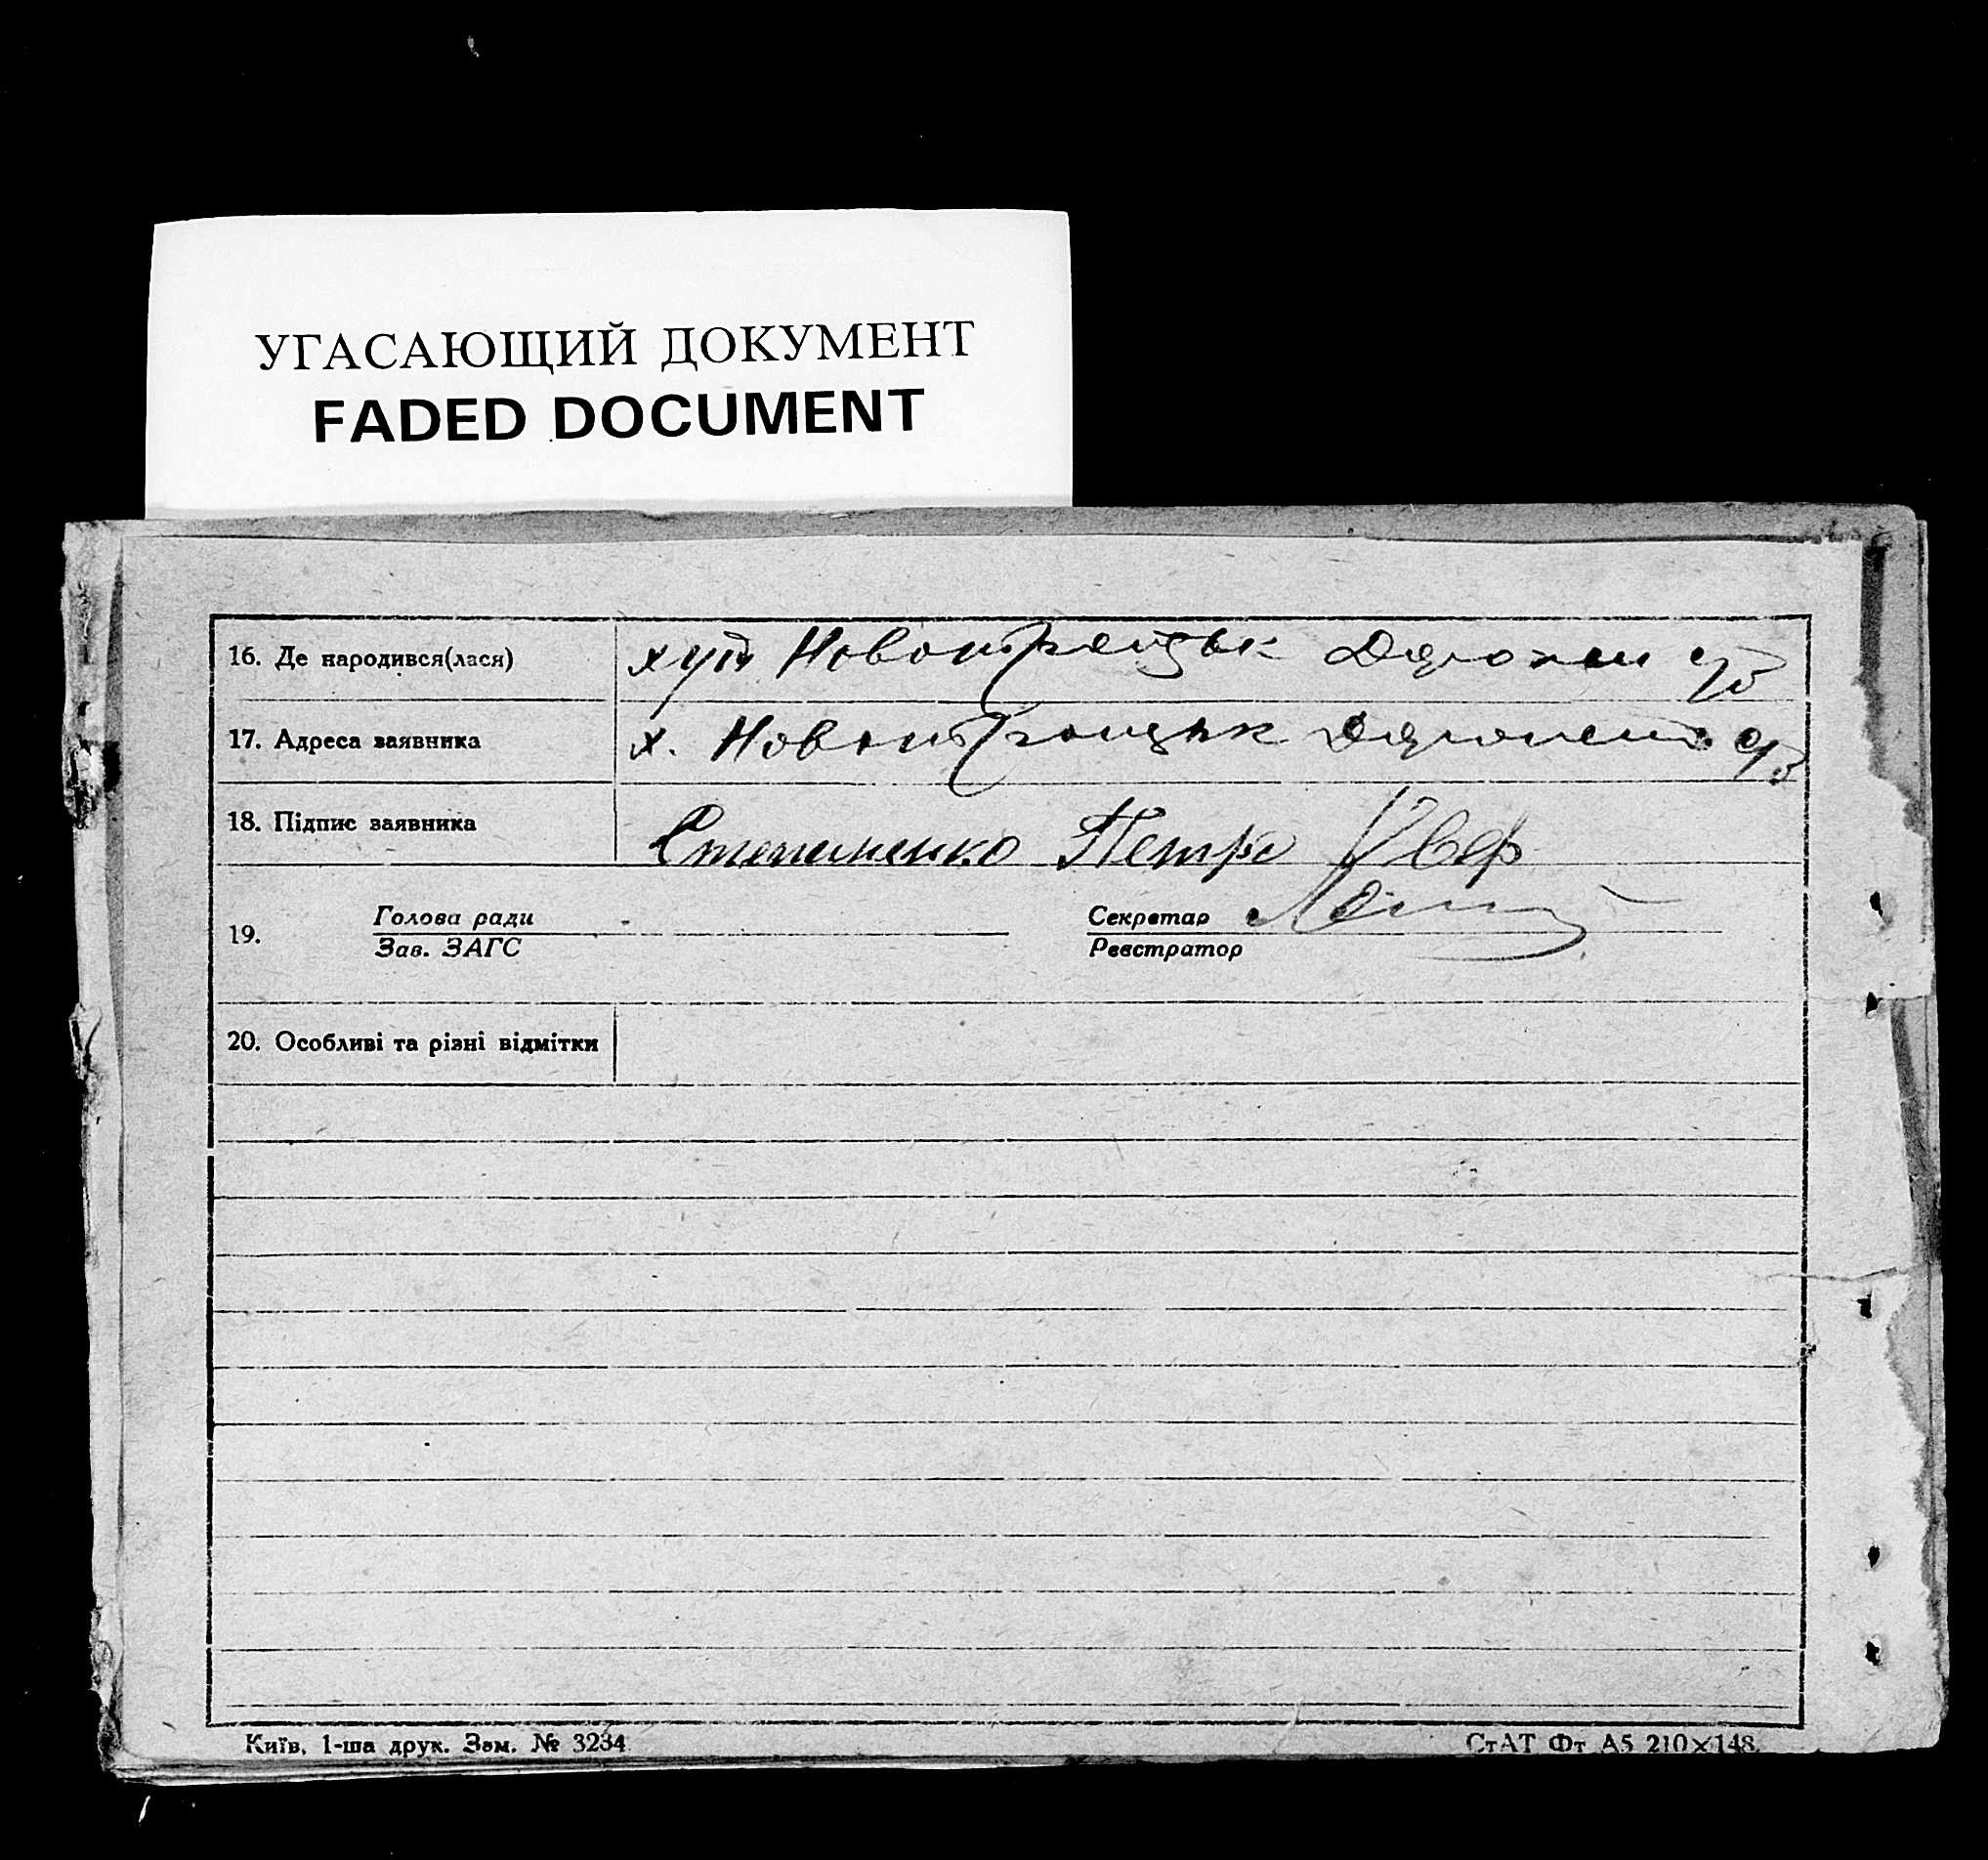 УГАСАЮЩИЙ ДОКУМЕНТ
FADED DOCUMENT
16. Де народився(лася) хут Новотроицьк
17. Адреса заявника х. Новотроицьк
18. Підпис заявника Степаненко Петро
19. Голова ради Секретар
Зав. ЗАГС Реєстратор
20. Особливі та різні відмітки
Київ, 1-ша друк. Зам. № 3234 СтАТ Фт А5 210×148.